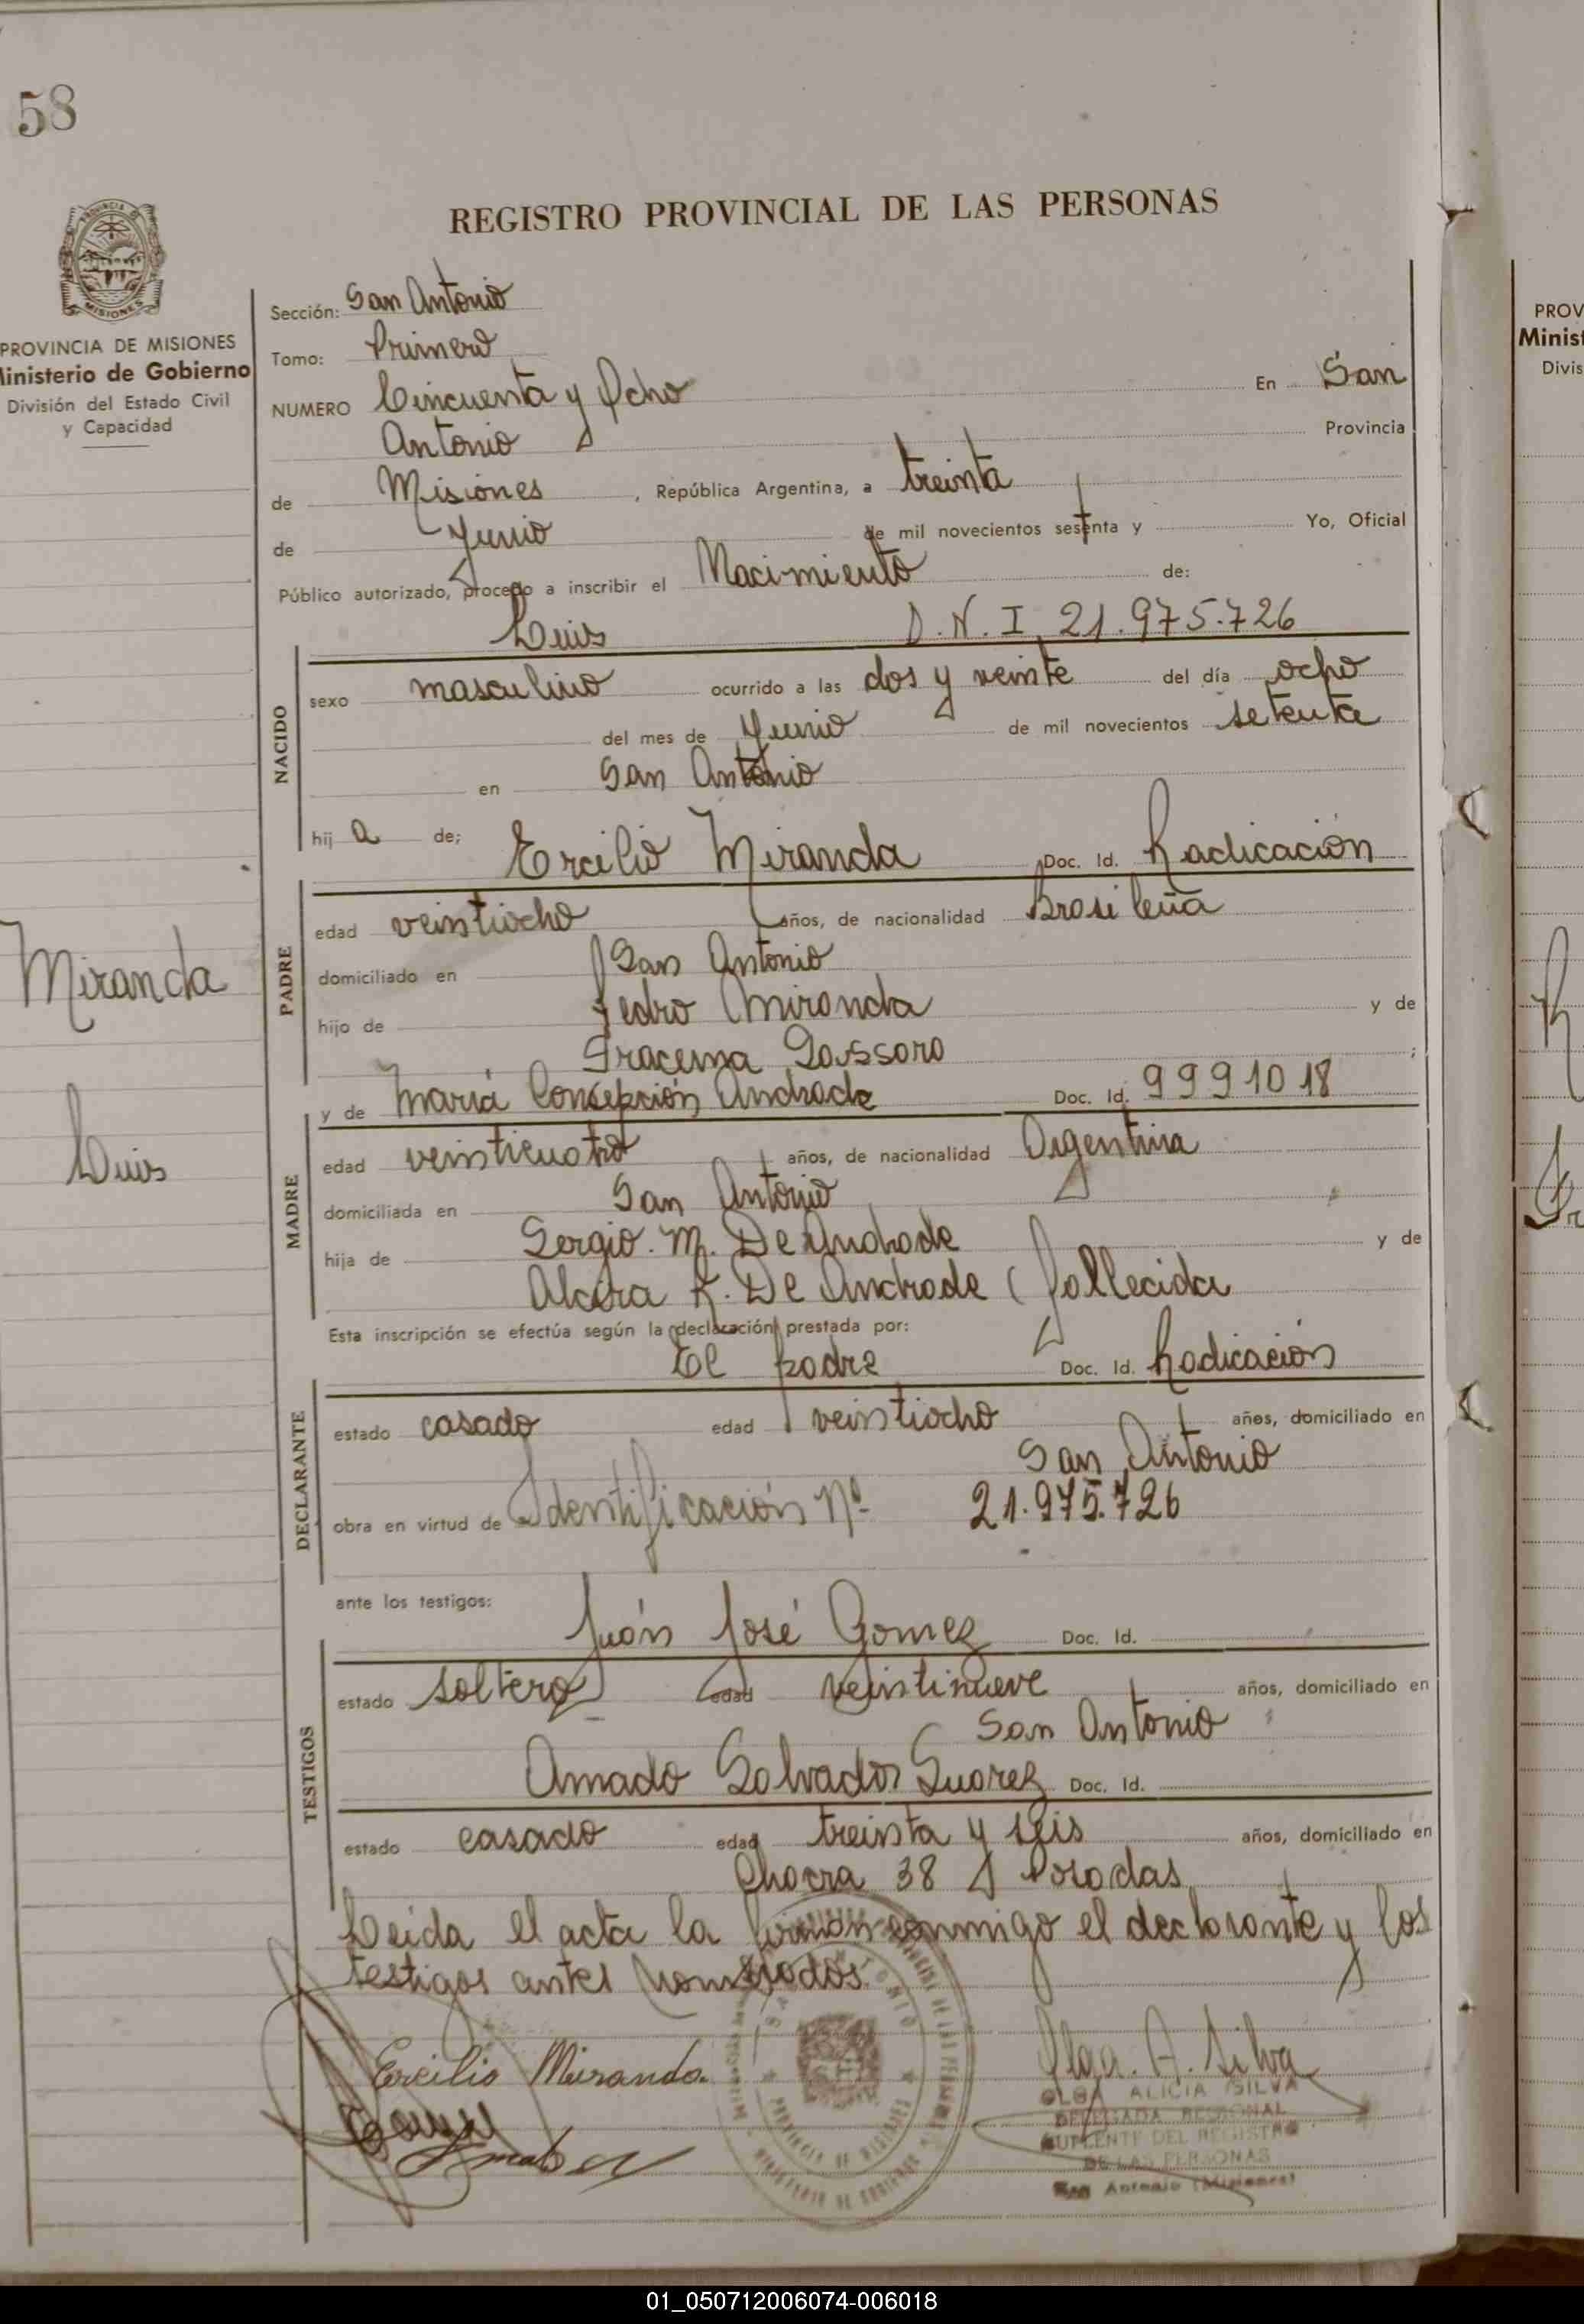 58
REGISTRO PROVINCIAL DE LAS PERSONAS
PROVINCIA DE
MISIONES
PROVINCIA DE MISIONES
Ministerio de Gobierno
División del Estado Civil
y Capacidad
Sección: San Antonio
Tomo: Primero
NUMERO Cincuenta y Ocho En San
Antonio Provincia
de Misiones, República Argentina, a treinta
de Junio de mil novecientos setenta y Yo, Oficial
Público autorizado, procedo a inscribir el Nacimiento de:
Luis D.N.I. 21.975.726
NACIDO
sexo masculino ocurrido a las dos y veinte del día ocho
del mes de Junio de mil novecientos setenta
en San Antonio
hij a de; Ercilio Miranda Doc. Id. Radicación
PADRE
edad veintiocho años, de nacionalidad Brasileña
domiciliado en San Antonio
hijo de Pedro Miranda y de
;
y de María Concepción Andrade Doc. Id. 9991018
MADRE
edad veinticuatro años, de nacionalidad Argentina
domiciliada en San Antonio
hija de Sergio. M. De Andrade y de
K. De Andrade (fallecida
Esta inscripción se efectúa según la declaración prestada por:
El padre Doc. Id. Radicación
DECLARANTE
estado casado edad veintiocho años, domiciliado en
San Antonio
obra en virtud de Identificación Nº 21.975.726
ante los testigos:
Juán José Gomez Doc. Id.
TESTIGOS
estado soltero edad veintinueve años, domiciliado en
San Antonio
Amado Salvador Suarez Doc. Id.
estado casado edad treinta y seis años, domiciliado en
Chacra 38 Posadas
Leída el acta la firman conmigo el declarante y los
testigos antes nombrados.
Miranda
Luis
Ercilio Miranda.
Olga. A. Silva
OLGA ALICIA SILVA
DELEGADA REGIONAL
SUPLENTE DEL REGISTRO
DE LAS PERSONAS
San Antonio (Misiones)
SAN ANTONIO
PROVINCIA DE MISIONES
PROV
Minist
Divis
01_050712006074-006018